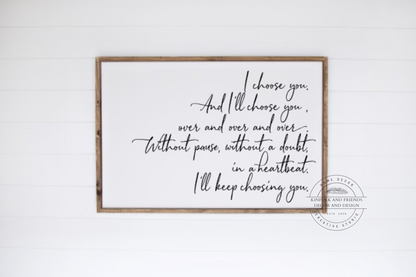 I choose you.
And I'll choose you,
over and over and over.
Without pause, without a doubt,
in a heartbeat.
I'll keep choosing you.
HOME DECOR
KINDRED AND FRIENDS
DECOR AND DESIGN
CREATIVE STUDIO